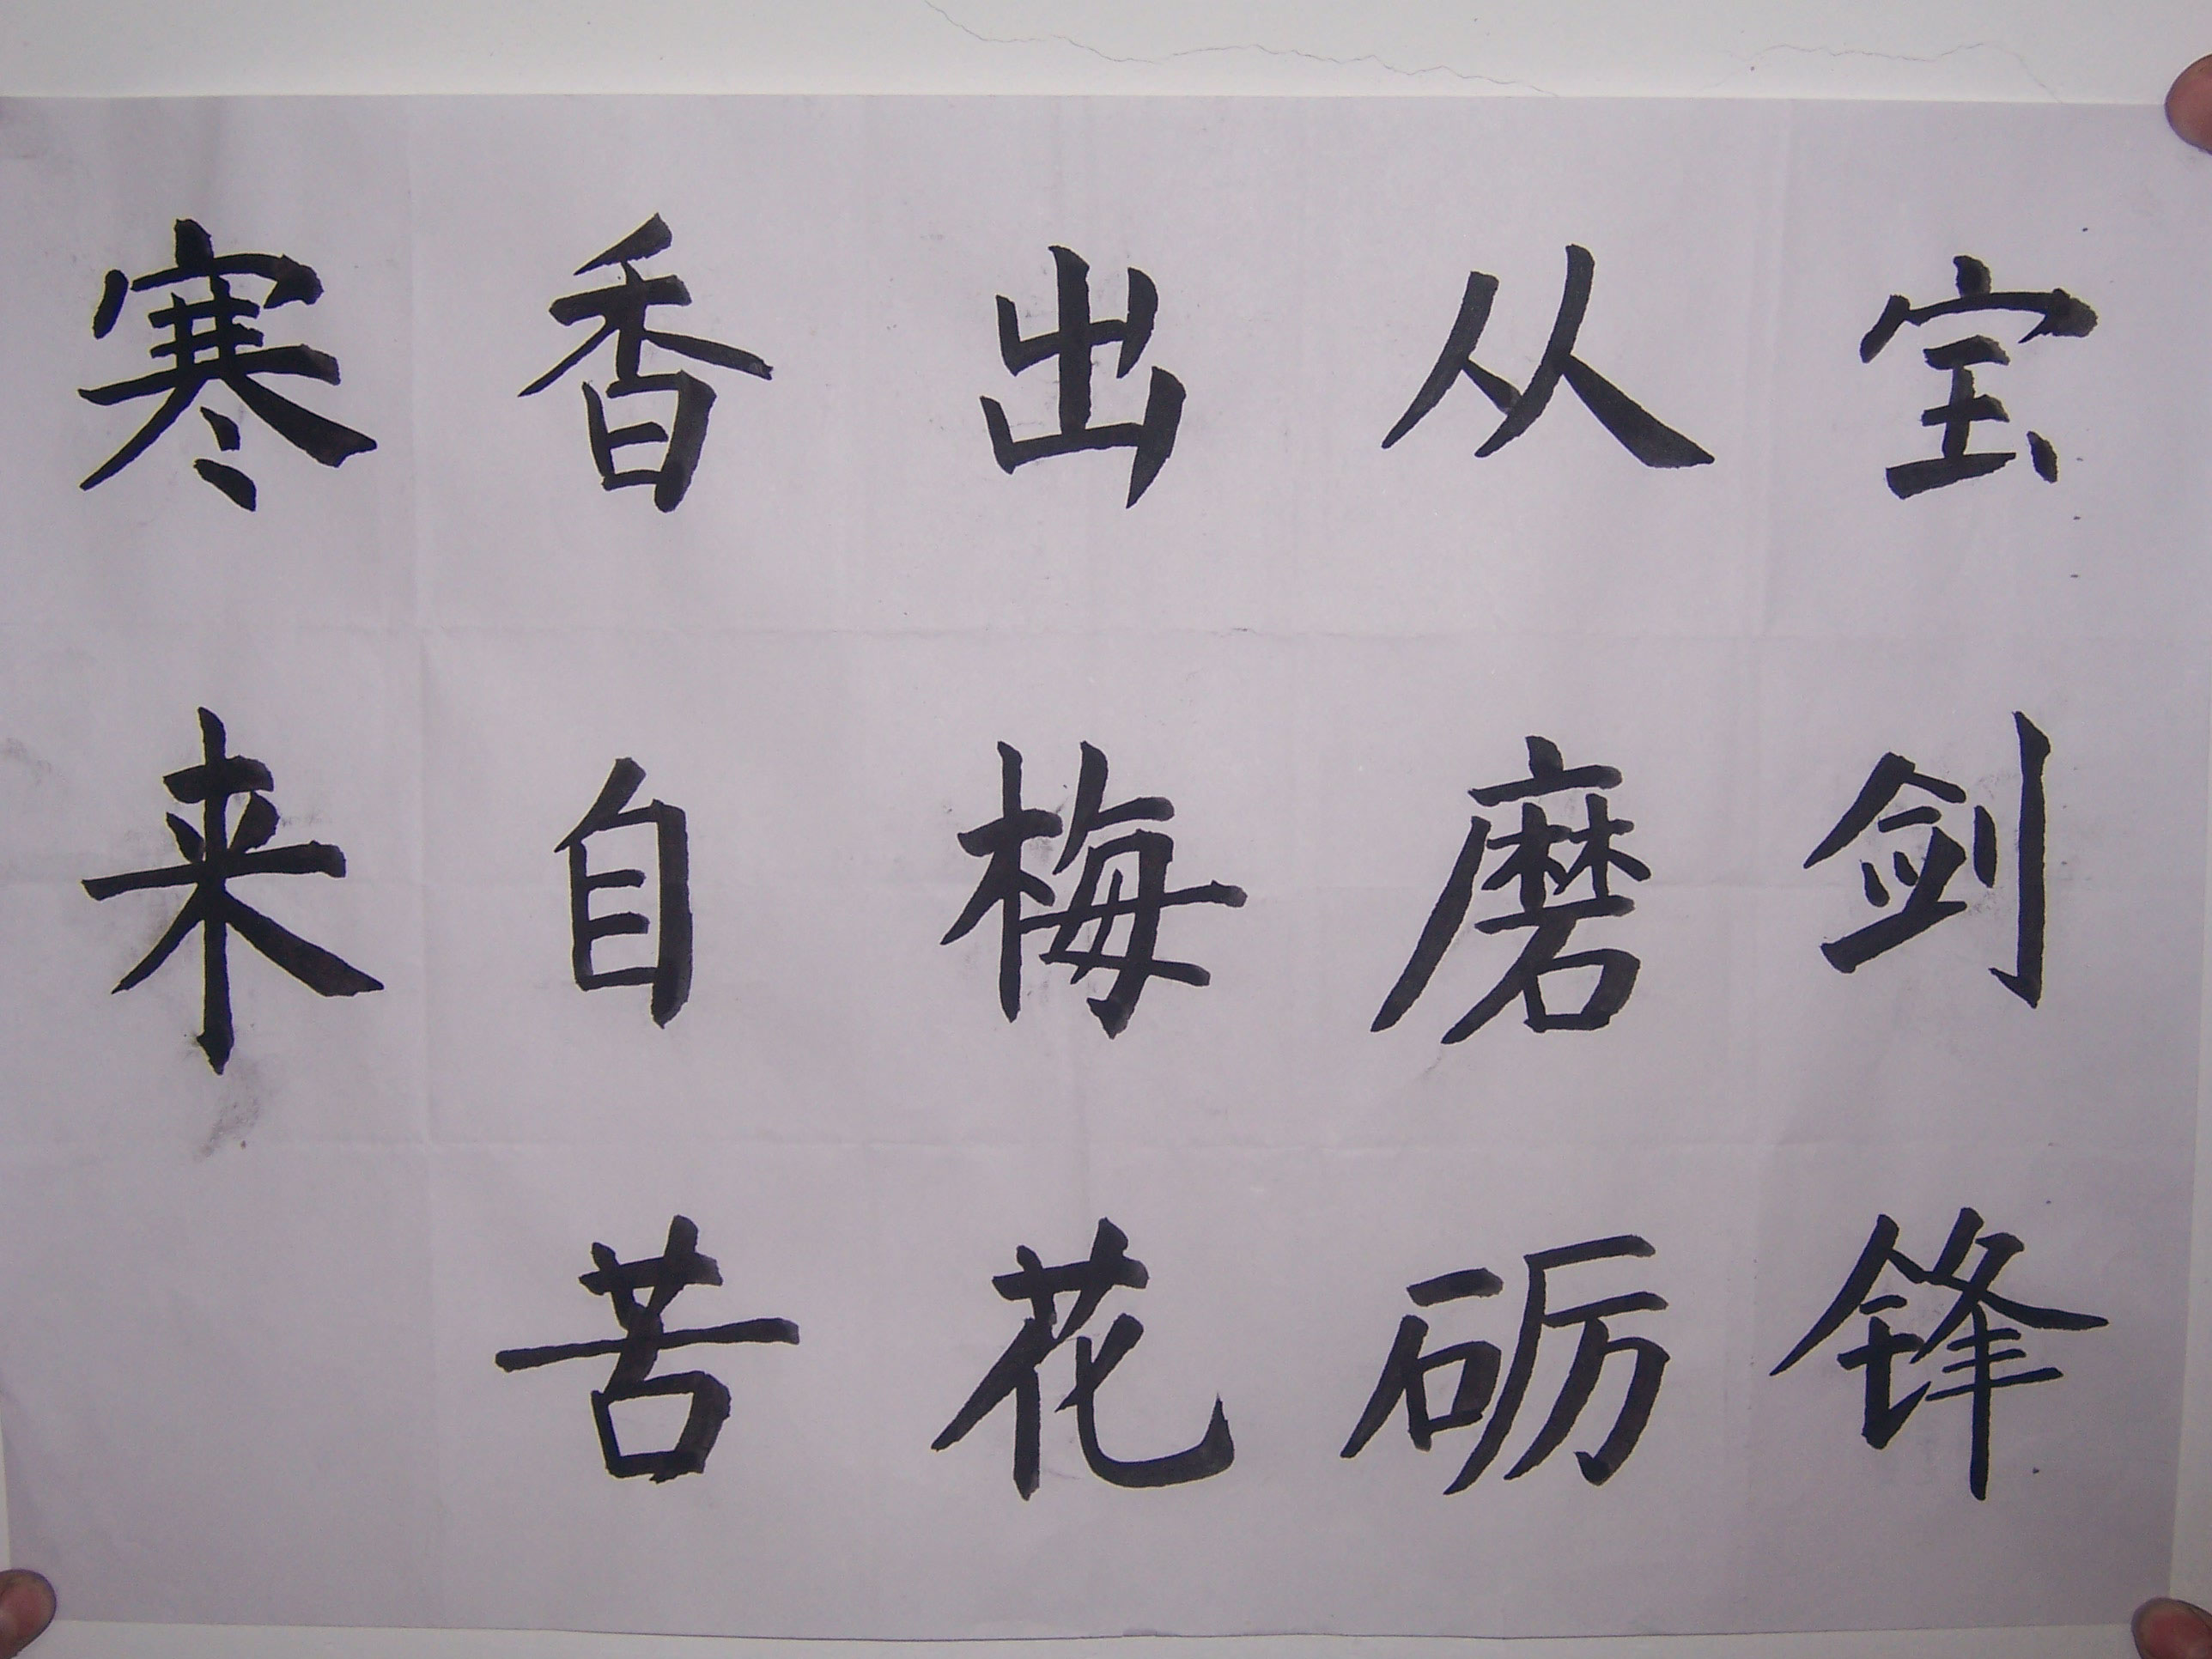 宝剑锋
从磨砺
出梅花
香自苦
寒来